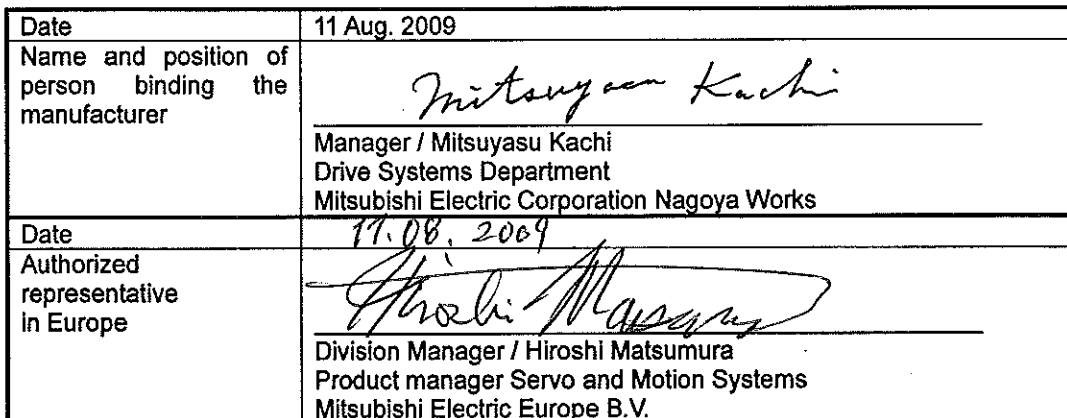 Date 11 Aug. 2009
Name and position of person binding the manufacturer
Mitsuyasu Kachi
Manager / Mitsuyasu Kachi
Drive Systems Department
Mitsubishi Electric Corporation Nagoya Works
Date 11.08.2009
Authorized representative in Europe
Hiroshi Matsumura
Division Manager / Hiroshi Matsumura
Product manager Servo and Motion Systems
Mitsubishi Electric Europe B.V.